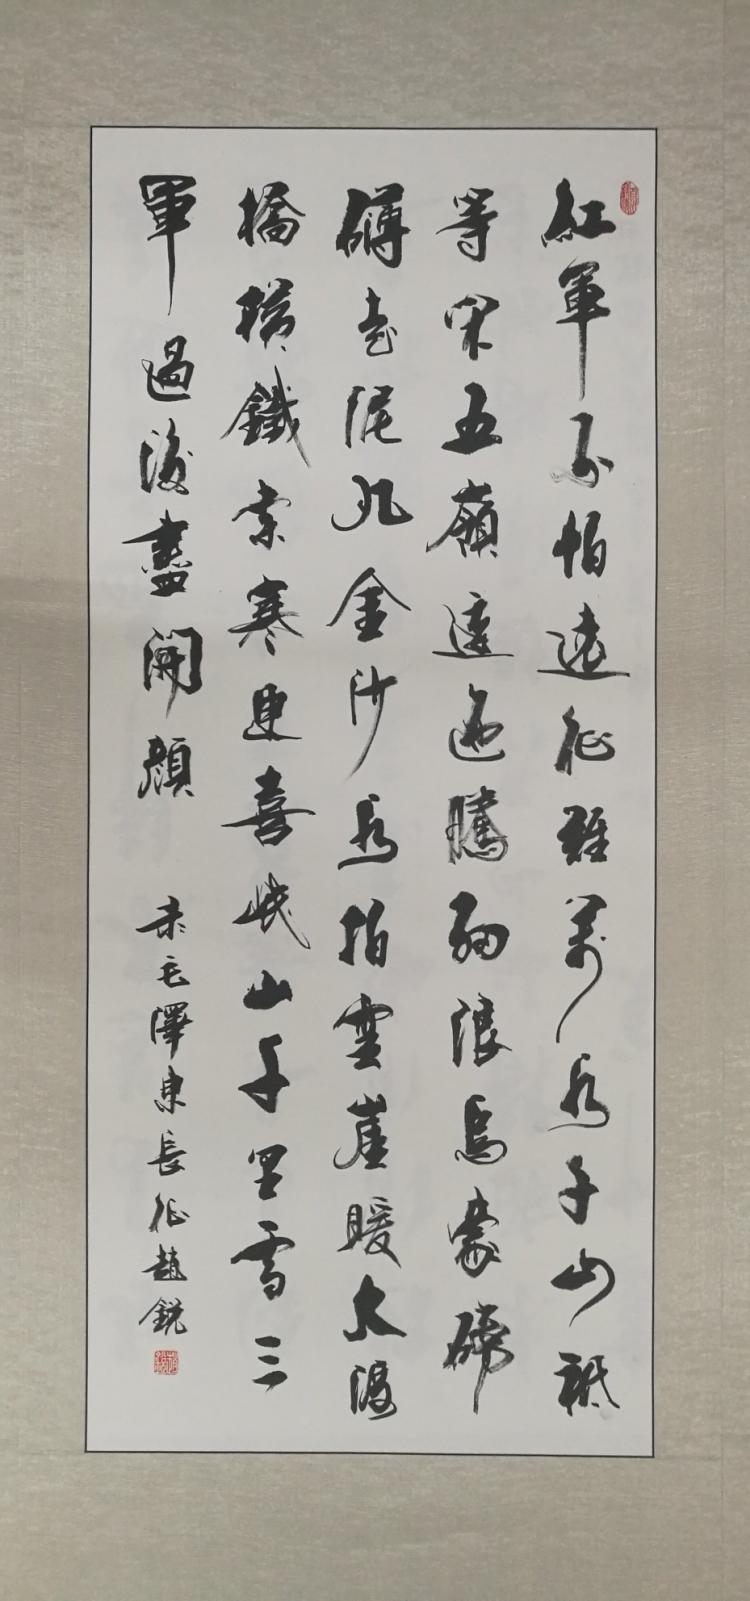 紅軍不怕遠征難萬水千山祗
等閑五嶺逶迤騰細浪烏蒙磅
礴走泥丸金沙水拍雲崖暖大渡
橋橫鐵索寒更喜岷山千里雪三
軍過後盡開顏 录毛澤東長征趙銳